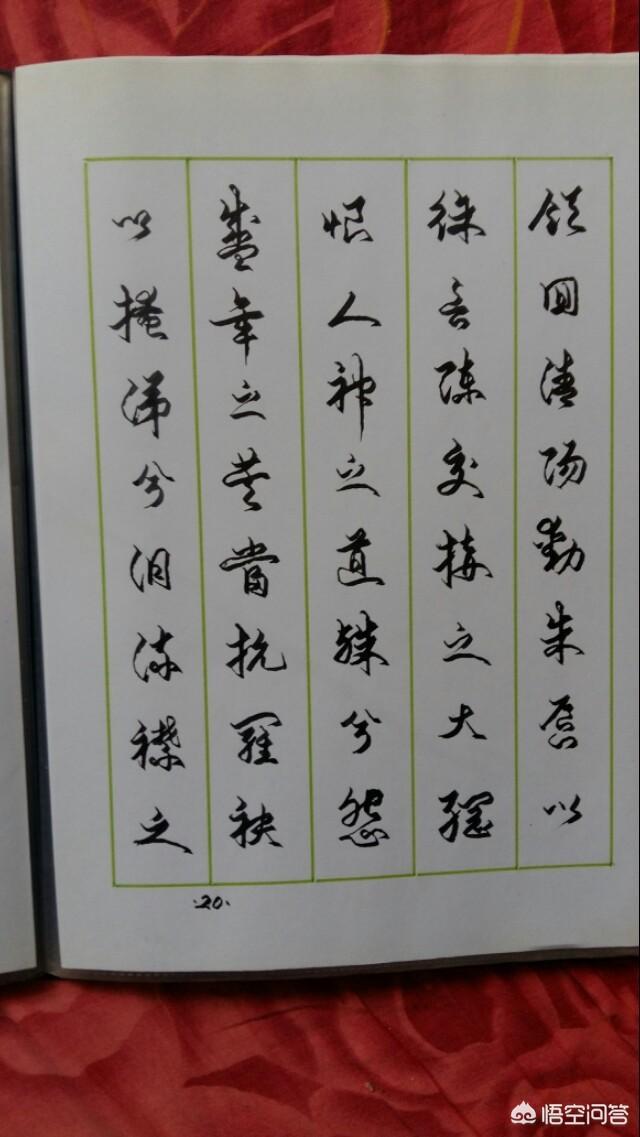 領回清陽動朱唇以
徐言陳交接之大綱
恨人神之道殊兮怨
盛年之莫當抗羅袂
以掩涕兮泪流襟之
·20·
悟空问答